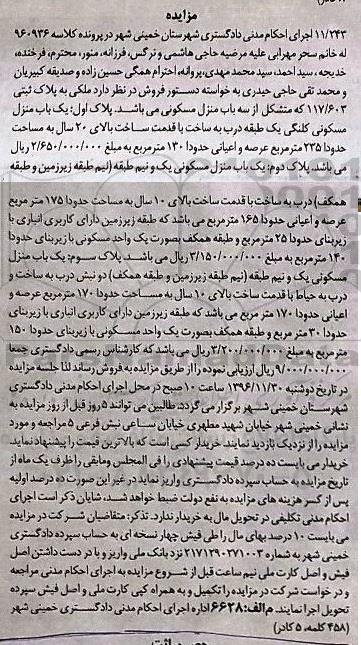 مزایده
۱۱/۲۴۳ اجرای احکام مدنی دادگستری شهرستان خمینی شهر در پرونده کلاسه ۹۶۰۹۳۶
له خانم سحر مهرابی علیه مرضیه حاجی هاشمی و نرگس، فرزانه، منور، محترم، فرخنده،
خدیجه، سید احمد، سید محمد مهدی، پروانه، احترام همگی حسین زاده و صدیقه کبیریان
و محمد تقی حاجی حیدری به خواسته دستور فروش در نظر دارد ملکی به پلاک ثبتی
۱۱۷/۶۰۳ که متشکل از سه باب منزل مسکونی می باشد. پلاک اول: یک باب منزل
مسکونی کلنگی یک طبقه درب به ساخت با قدمت ساخت بالای ۲۰ سال به مساحت
حدودا ۲۳۵ مترمربع عرصه و اعیانی حدودا ۱۳۰ مترمربع به مبلغ ۲/۶۵۰/۰۰۰/۰۰۰ ریال
می باشد. پلاک دوم: یک باب منزل مسکونی یک و نیم طبقه (نیم طبقه زیرزمین و طبقه
همکف) درب به ساخت با قدمت ساخت بالای ۱۰ سال به مساحت حدودا ۱۷۵ متر مربع
عرصه و اعیانی حدودا ۱۶۵ مترمربع می باشد که طبقه زیرزمین دارای کاربری انباری با
زیربنای حدودا ۲۵ مترمربع و طبقه همکف بصورت یک واحد مسکونی با زیربنای حدودا
۱۴۰ مترمربع به مبلغ ۳/۱۵۰/۰۰۰/۰۰۰ ریال می باشد. پلاک سوم: یک باب منزل
مسکونی یک و نیم طبقه (نیم طبقه زیرزمین و طبقه همکف) دو نبش درب به ساخت و
درب به حیاط با قدمت ساخت بالای ۱۰ سال به مساحت حدودا ۱۷۰ مترمربع عرصه و
اعیانی حدودا ۱۷۰ متر مربع می باشد که طبقه زیرزمین دارای کاربری انباری با زیربنای
حدودا ۳۰ متر مربع و طبقه همکف بصورت یک واحد مسکونی با زیربنای حدودا ۱۵۰
مترمربع به مبلغ ۳/۲۰۰/۰۰۰/۰۰۰ ریال می باشد که کارشناس رسمی دادگستری جمعا
۹/۰۰۰/۰۰۰/۰۰۰ ریال ارزیابی نموده را از طریق مزایده به فروش رساند لذا جلسه مزایده
در تاریخ دوشنبه ۱۳۹۶/۱۱/۳۰ ساعت ۱۰ صبح در محل اجرای احکام مدنی دادگستری
شهرستان خمینی شهر برگزار می گردد. طالبین می توانند ۵ روز قبل از روز مزایده به
نشانی خمینی شهر خیابان شهید مطهری خیابان ساعی نبش فرعی ۵ مراجعه و مورد
مزایده را از نزدیک بازدید نمایند. خریدار کسی است که بالاترین قیمت را پیشنهاد نماید
خریدار می بایست ده درصد قیمت پیشنهادی را فی المجلس و مابقی را ظرف یک ماه از
تاریخ مزایده به حساب سپرده دادگستری واریز نماید در غیر این صورت ده درصد اولیه
پس از کسر هزینه های مزایده به نفع دولت ضبط خواهد شد. شایان ذکر است اجرای
احکام مدنی تکلیفی در تحویل مال به خریدار ندارد. تذکر: متقاضیان شرکت در مزایده
می بایست ۱۰ درصد بهای مال را طی فیش چهار نسخه ای به حساب سپرده دادگستری
خمینی شهر به شماره ۲۱۷۱۲۹۰۲۷۱۰۰۳ نزد بانک ملی واریز و با در دست داشتن اصل
فیش و اصل کارت ملی نیم ساعت قبل از شروع مزایده به اجرای احکام مدنی مراجعه
و در خواست شرکت در مزایده را تکمیل و به همراه کپی کارت ملی و اصل فیش سپرده
تحویل اجرا نمایند. م الف: ۶۶۳۸ اداره اجرای احکام مدنی دادگستری خمینی شهر
(۴۵۸ کلمه، ۵ کادر)